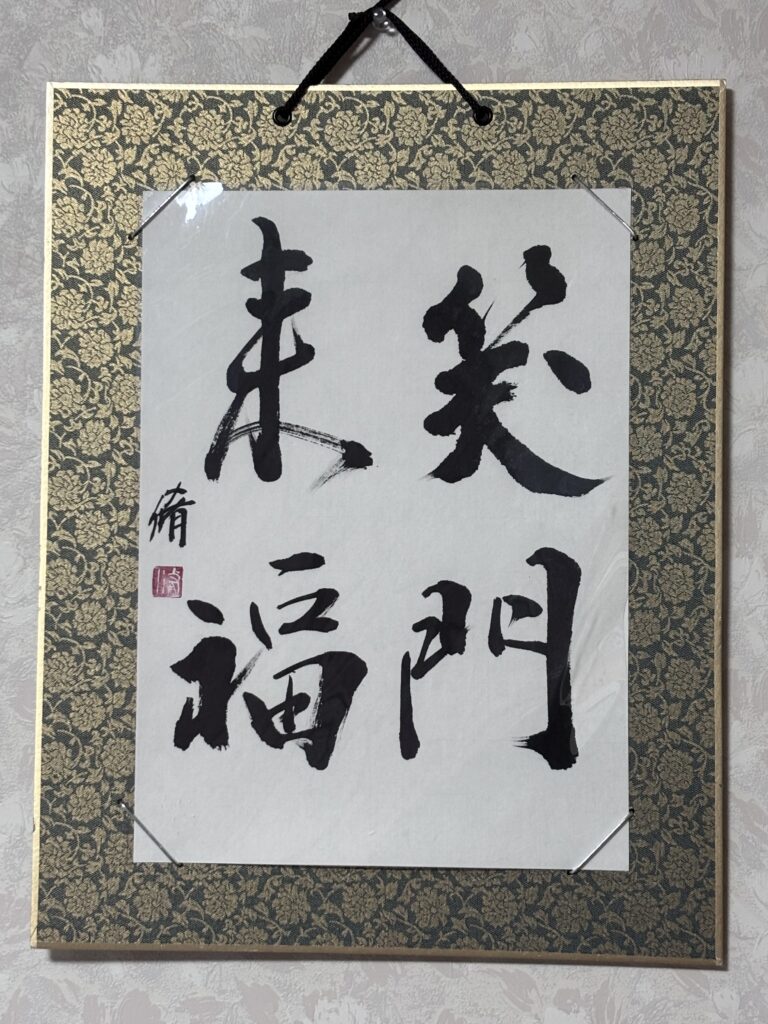 笑門
来福
脩